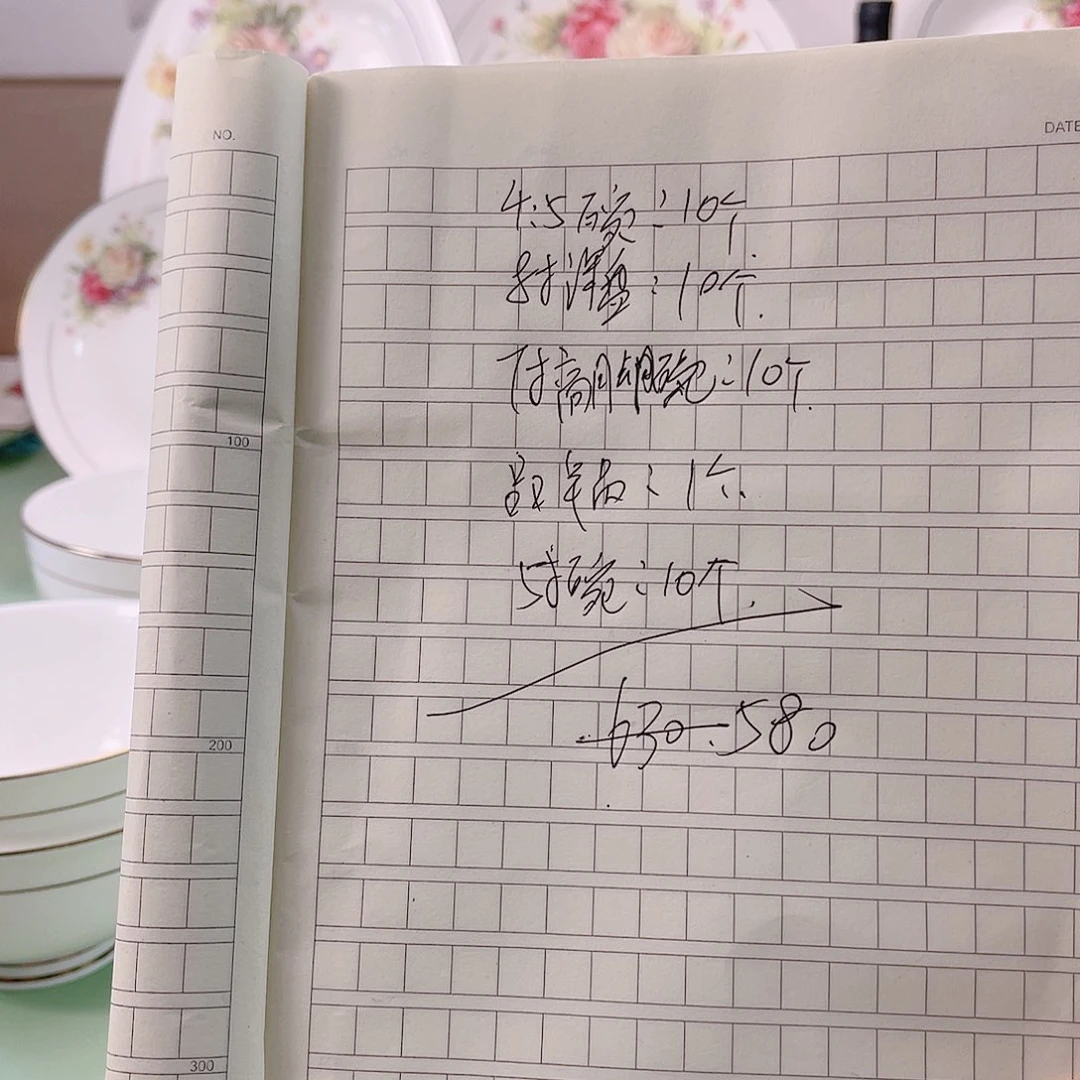 NO.
DATE
4.5碗：10个
8寸深盘：10个.
7寸高脚碗：10个.
品：1个.
5寸碗：10个.
630 580
100
200
300